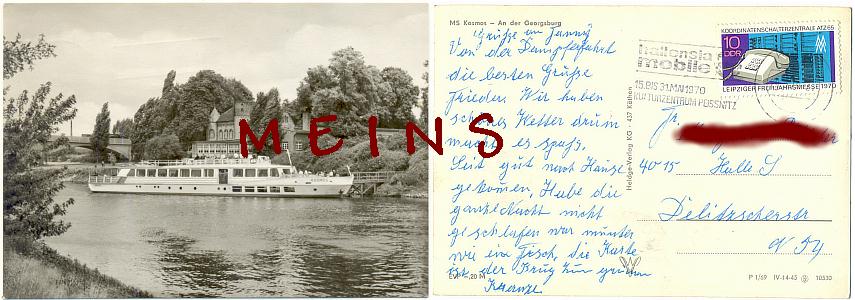 MEINS
MS Kosmos – An der Georgsburg
Grüße an Fanny
Von der Dampferfahrt
die besten Grüße
Frieder. Wir haben
schönes Wetter drum
macht es spaß.
Seit gut nach Hause
gekommen, Habe die
ganze Nacht nicht
geschlafen war munter
wie ein Fisch, die Karte
ist der Krug zum grünen
Kranze
EVP –,20 M
Heldge-Verlag KG · 437 Köthen
hallensia
mobile
15. BIS 31. MAI 1970
KULTURZENTRUM PEISSNITZ
KOORDINATENSCHALTERZENTRALE ATZ 65
10
DDR
LEIPZIGER FRÜHJAHRSMESSE 1970
Fr.
4015 Halle S
Delitzscherstr
N 54
P 1/69 IV-14-45 10530